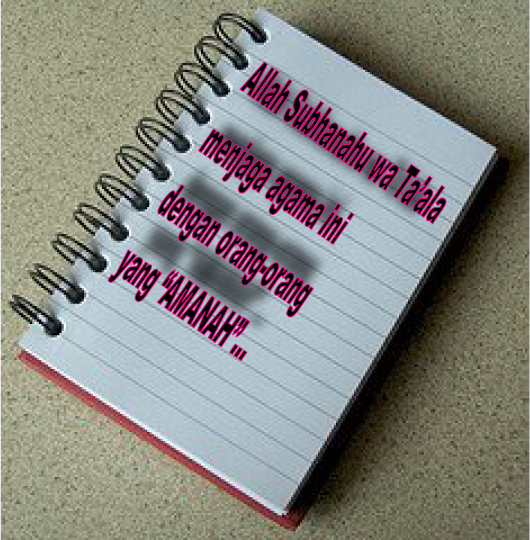 Allah Subhanahu wa Ta'ala
menjaga agama ini
dengan orang-orang
yang "AMANAH"...